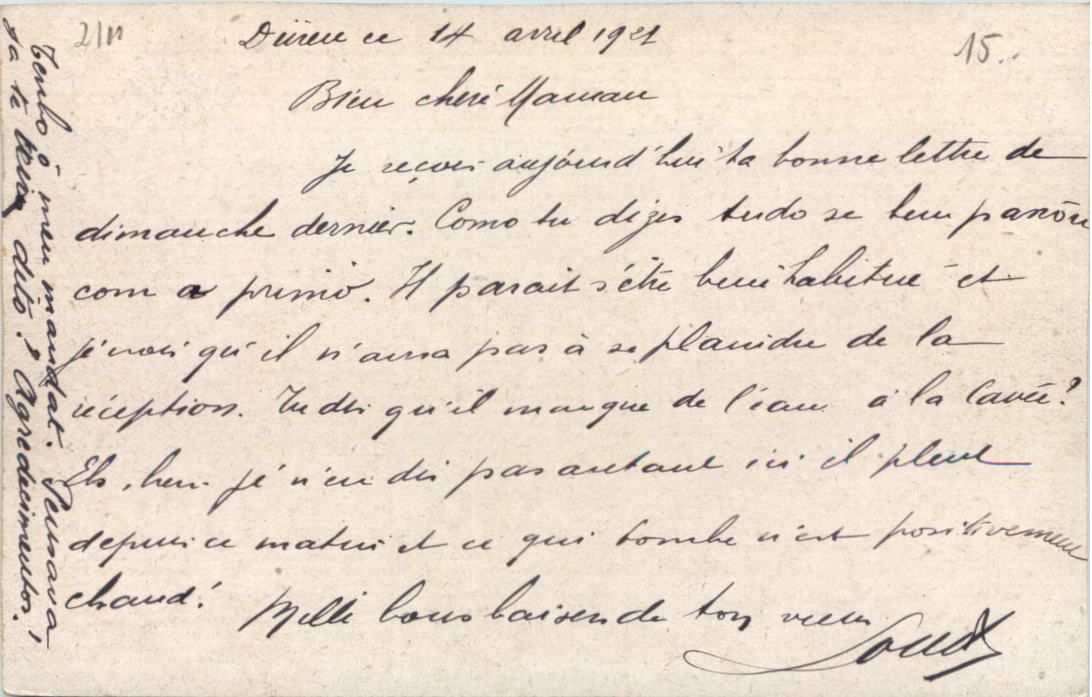 2/11
15.
Düren ce 14 avril 1921
Bien cheré Maman
Je reçois aujourd'hui ta bonne lettre de
dimanche dernier. Como tu dizes tudo se tem
com a primo. Il parait s'être bien habitué et
je crois qu'il n'aura pas à se plaindre de la
réception. Tu dis qu'il manque de l'eau à la Cavée?
Eh bien je n'en dis pas autant ici il pleut
depuis ce matin et ce qui tombe n'est positivement
chaud!
Mille bons baisers de ton vieux
Tenho o meu mandat. Pensava
ja te dito? Agredecimentos.